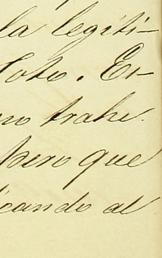 la legiti-
Soto. En-
no trahe.
pero que
icando al